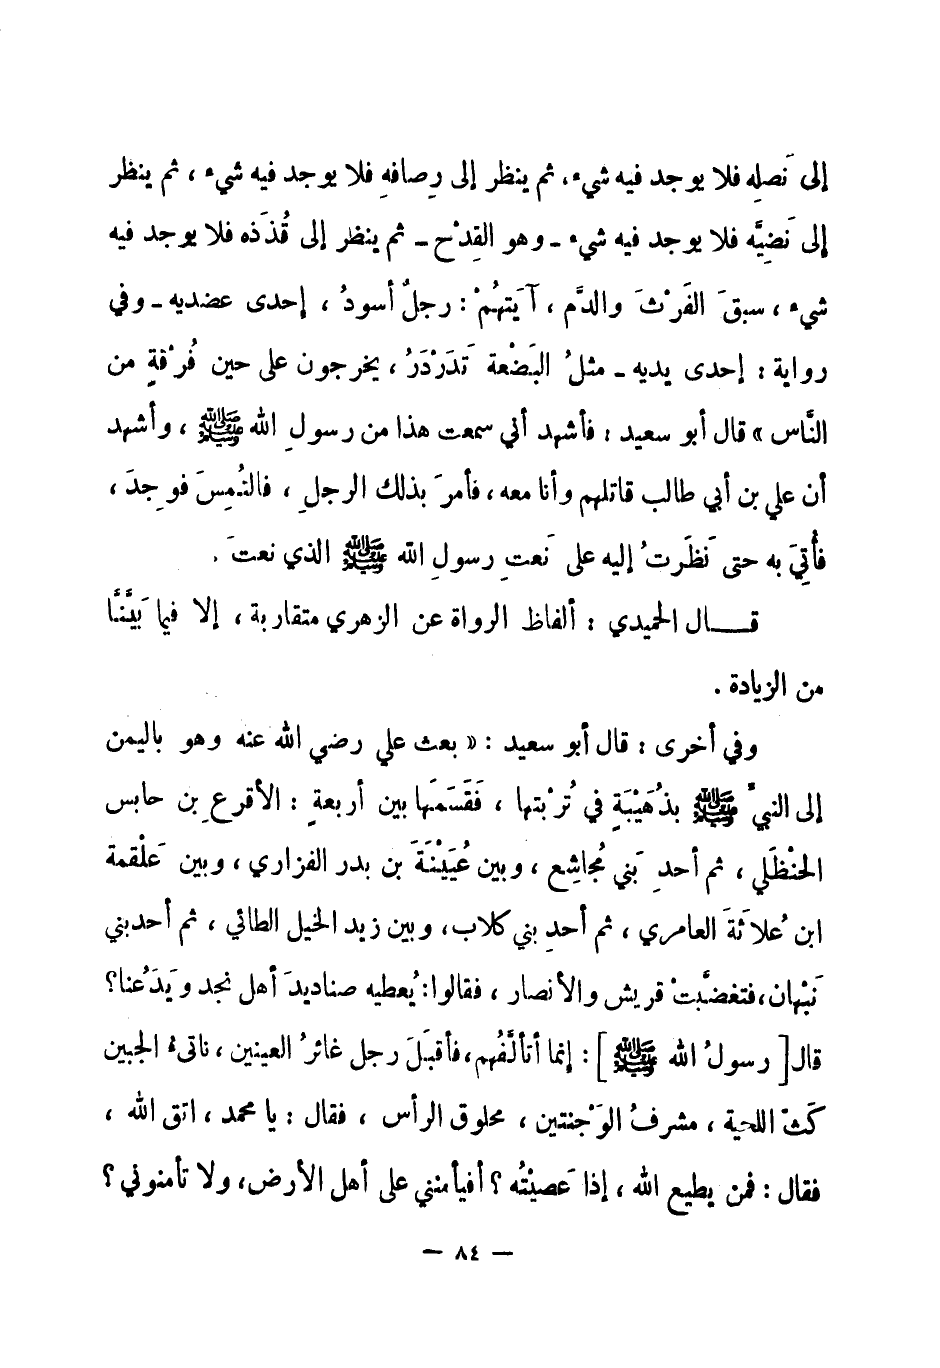 إلى نَصلِه فلا يوجد فيه شيء، ثم ينظر إلى رِصافهِ فلا يوجد فيه شيء ، ثم ينظر
إلى نَضِيَّه فلا يوجد فيه شيء ـ وهو القِدْح ـ ثم ينظر إلى قُذَذه فلا يوجد فيه
شيء ، سبقَ الفَرْثَ والدَّم ، آيَتهُمْ : رجلٌ أسودُ ، إحدى عضديه ـ وفي
رواية : إحدى يديه ـ مثلُ البَضْعة تَدَرْدَرُ ، يخرجون على حين فُرْقةٍ من
النَّاس » قال أبو سعيد : فأشهد أني سمعت هذا من رسولِ الله ﷺ ، وأشهد
أن علي بن أبي طالب قاتلهم وأنا معه ، فأمرَ بذلك الرجلِ ، فالتُمِسَ فوجِدَ ،
فأُتِيَ به حتى نَظَرتُ إليه على نَعتِ رسولِ الله ﷺ الذي نعتَ .
قـــال الحميدي : ألفاظ الرواة عن الزهري متقاربة ، إلا فيما بَيَّنَّا
من الزيادة .
وفي أخرى : قال أبو سعيد : « بعث علي رضي الله عنه وهو باليمن
إلى النبيِّ ﷺ بذُهَيْبَةٍ في تُرْبتها ، فَقَسَمَها بين أربعةٍ : الأقرعِ بن حابس
الحنْظَلي ، ثم أحدِ بَني مُجاشِع ، وبين عُيَيْنَةَ بن بدر الفزاري ، وبين عَلْقمة
ابن عُلاثَةَ العامري ، ثم أحدِ بني كلاب ، وبين زيد الخيل الطائي ، ثم أحد بني
نَبْهان، فتغضَّبتْ قريش والأنصار ، فقالوا: يُعطيه صناديدَ أهل نجد ويَدَعُنا؟
قال [ رسولُ الله ﷺ ] : إنما أتألَّفُهم، فأقبَلَ رجل غائرُ العينين ، ناتىءُ الجبين
كَثُّ اللحية ، مشرفُ الوَجْنتين ، محلوق الرأس ، فقال : يا محمد ، اتق الله ،
فقال : فمن يطيع الله ، إذا عَصيْتُه ؟ أفيأمنني على أهل الأرض، ولا تأمنوني ؟
— ٨٤ —